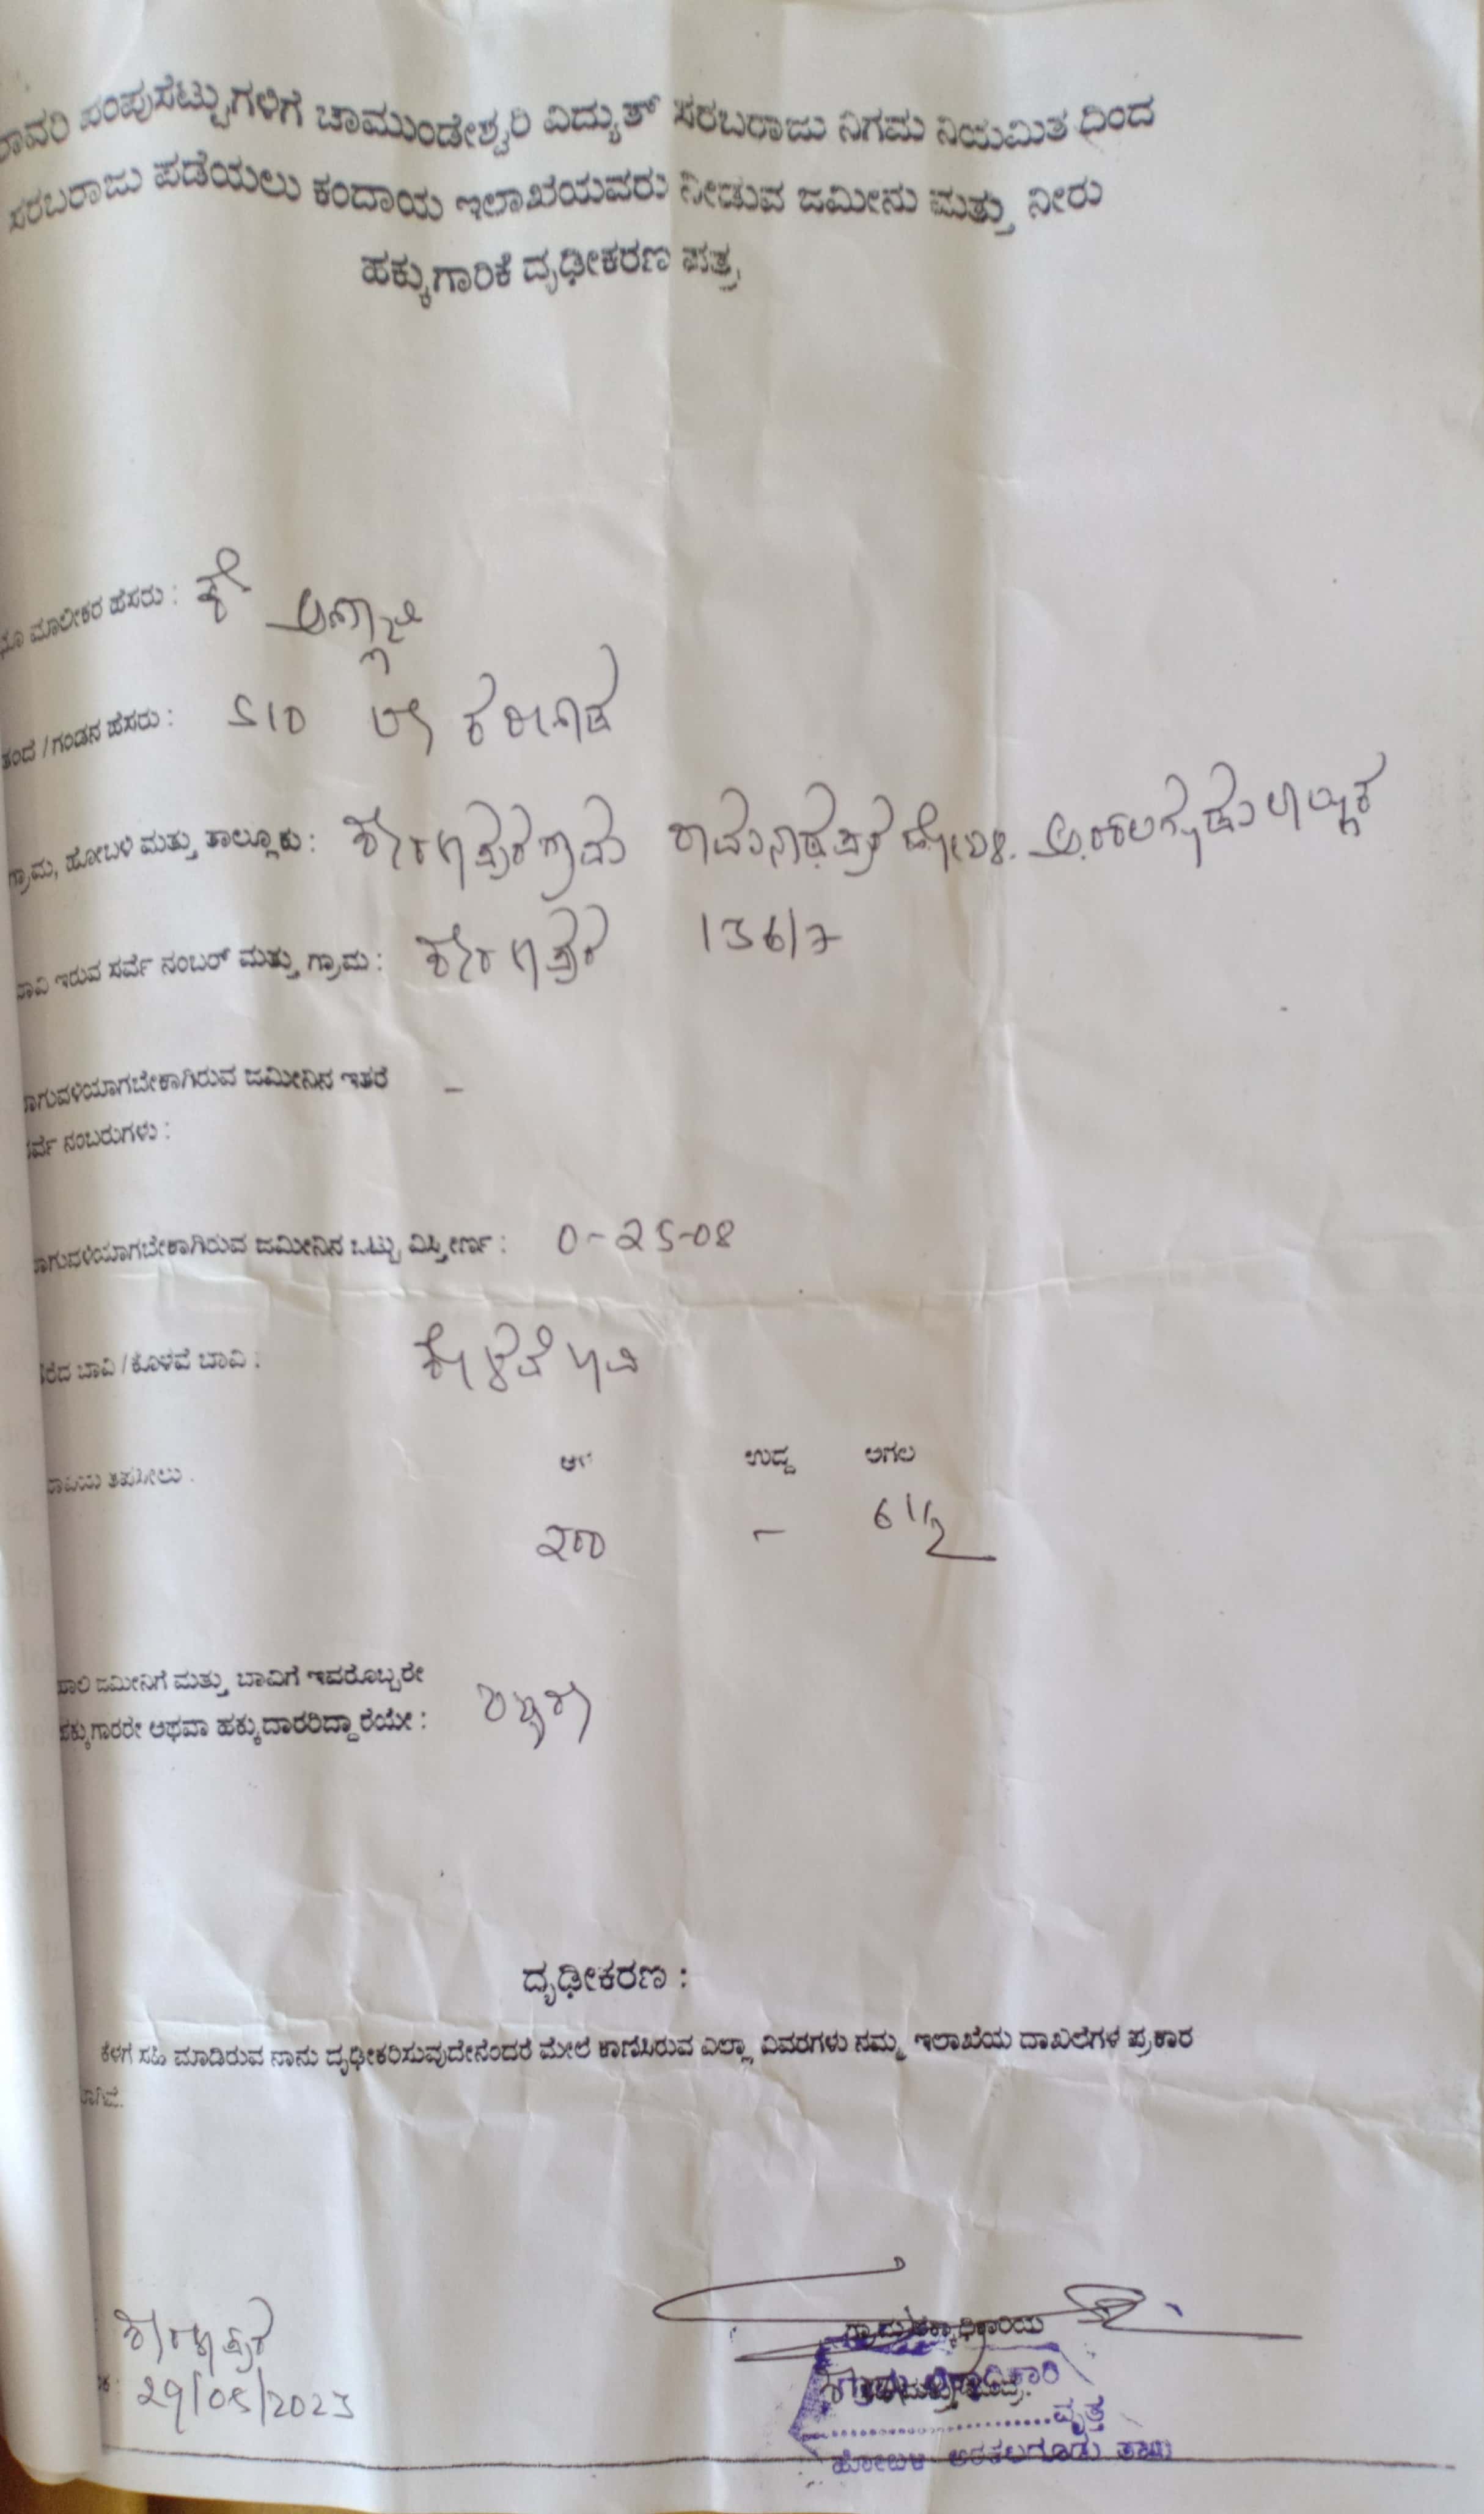 ಪಂಪುಸೆಟ್ಟುಗಳಿಗೆ ಚಾಮುಂಡೇಶ್ವರಿ ವಿದ್ಯುತ್ ಸರಬರಾಜು ನಿಗಮ ನಿಯಮಿತ ದಿಂದ
ಸರಬರಾಜು ಪಡೆಯಲು ಕಂದಾಯ ಇಲಾಖೆಯವರು ನೀಡುವ ಜಮೀನು ಮತ್ತು ನೀರು
ಹಕ್ಕುಗಾರಿಕೆ ದೃಢೀಕರಣ ಪತ್ರ
ಮಾಲೀಕರ ಹೆಸರು : ಕೆ
ತಂದೆ / ಗಂಡನ ಹೆಸರು : S/O
ಗ್ರಾಮ, ಹೋಬಳಿ ಮತ್ತು ತಾಲ್ಲೂಕು : ಕೇರಳಾಪುರ ಗ್ರಾಮ ರಾಮನಾಥಪುರ ಹೋಬಳಿ. ಅರಕಲಗೂಡು ತಾಲ್ಲೂಕು
ಇರುವ ಸರ್ವೆ ನಂಬರ್ ಮತ್ತು ಗ್ರಾಮ : ಕೇರಳಾಪುರ 136/7
ಜಮೀನಿನ ಇತರೆ -
ನಂಬರುಗಳು :
ಜಮೀನಿನ ಒಟ್ಟು ವಿಸ್ತೀರ್ಣ : 0-25-08
ಬಾವಿ / ಕೊಳವೆ ಬಾವಿ : ಕೊಳವೆ ಬಾವಿ
ತಪಸೀಲು : ಉದ್ದ ಅಗಲ
200 - 6 1/2
ಜಮೀನಿಗೆ ಮತ್ತು ಬಾವಿಗೆ ಇವರೊಬ್ಬರೇ
ಹಕ್ಕುಗಾರರೇ ಅಥವಾ ಹಕ್ಕುದಾರರಿದ್ದಾರೆಯೇ :
ದೃಢೀಕರಣ :
ಕೆಳಗೆ ಸಹಿ ಮಾಡಿರುವ ನಾನು ದೃಢೀಕರಿಸುವುದೇನೆಂದರೆ ಮೇಲೆ ಕಾಣಿಸಿರುವ ಎಲ್ಲಾ ವಿವರಗಳು ನಮ್ಮ ಇಲಾಖೆಯ ದಾಖಲೆಗಳ ಪ್ರಕಾರ
ಕೇರಳಾಪುರ
29/05/2023
ವೃತ್ತ
ಹೋಬಳಿ ಅರಕಲಗೂಡು ತಾಲ್ಲೂಕು